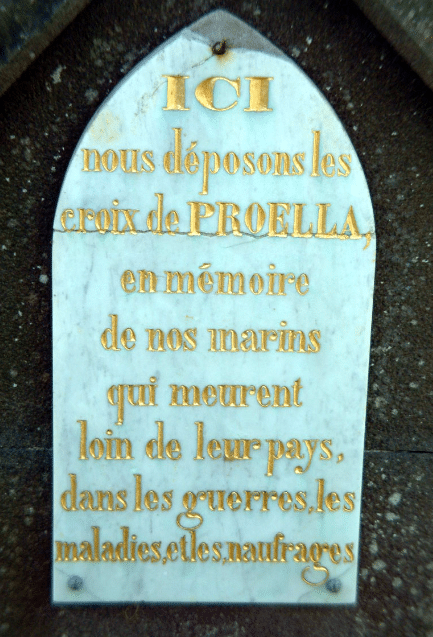 ICI
nous déposons les
croix de PROELLA,
en mémoire
de nos marins
qui meurent
loin de leur pays,
dans les guerres, les
maladies, et les, naufrages